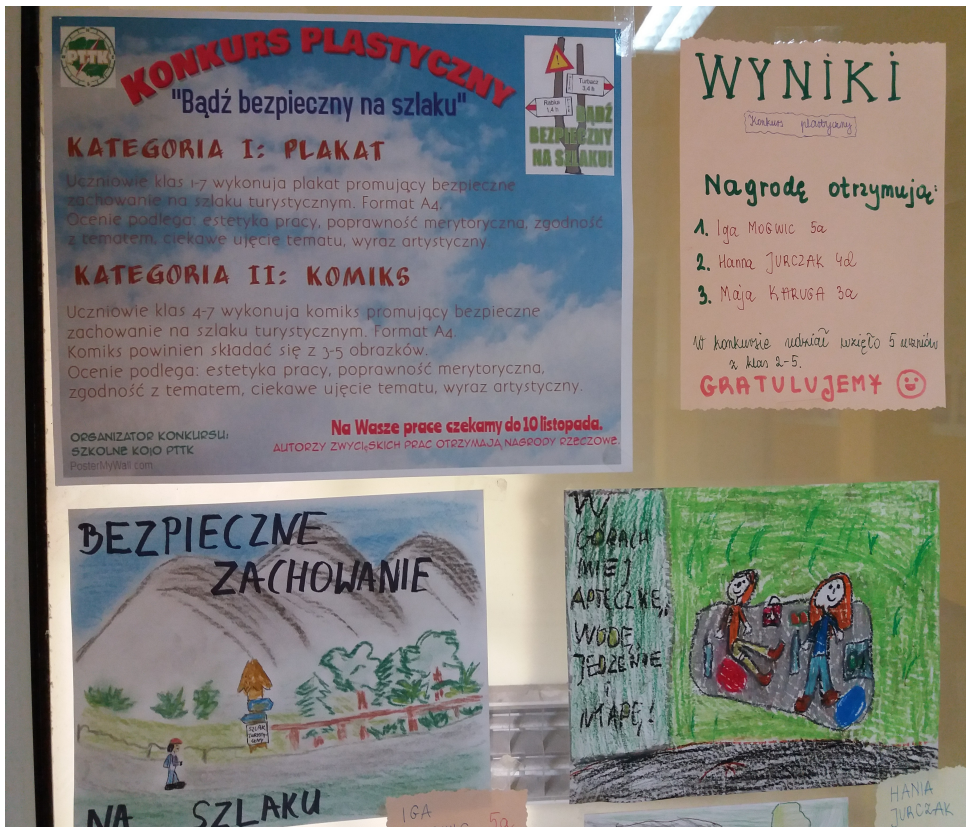 PTTK
KONKURS PLASTYCZNY
"Bądź bezpieczny na szlaku"
Turbacz
3,4 h
Rabka
1,4 h
BĄDŹ
BEZPIECZNY
NA SZLAKU!
KATEGORIA I: PLAKAT
Uczniowie klas 1-7 wykonują plakat promujący bezpieczne
zachowanie na szlaku turystycznym. Format A4.
Ocenie podlega: estetyka pracy, poprawność merytoryczna, zgodność
z tematem, ciekawe ujęcie tematu, wyraz artystyczny.
KATEGORIA II: KOMIKS
Uczniowie klas 4-7 wykonują komiks promujący bezpieczne
zachowanie na szlaku turystycznym. Format A4.
Komiks powinien składać się z 3-5 obrazków.
Ocenie podlega: estetyka pracy, poprawność merytoryczna,
zgodność z tematem, ciekawe ujęcie tematu, wyraz artystyczny.
Na Wasze prace czekamy do 10 listopada.
AUTORZY ZWYCIĘSKICH PRAC OTRZYMAJĄ NAGRODY RZECZOWE.
ORGANIZATOR KONKURSU:
SZKOLNE KOŁO PTTK
PosterMyWall.com
WYNIKI
Konkurs plastyczny
Nagrodę otrzymują:
1. Iga MOGWIC 5a
2. Hanna JURCZAK 4d
3. Maja KARUGA 3a
W konkursie udział wzięło 5 uczniów
z klas 2-5.
GRATULUJEMY
BEZPIECZNE
ZACHOWANIE
SZLAK
NA SZLAKU
IGA
5a
W
GÓRACH
MIEJ
APTECZKĘ,
WODĘ,
JEDZENIE
i
MAPĘ!
HANIA
JURCZAK